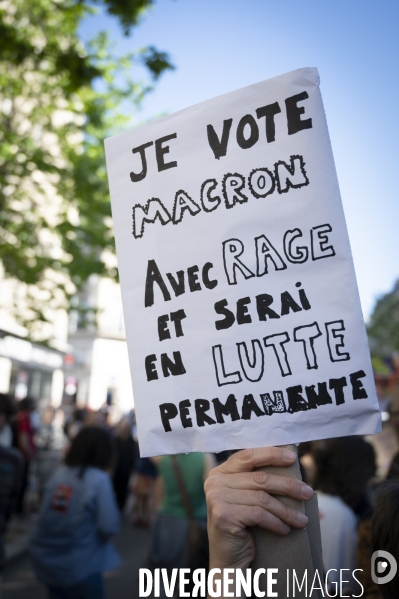 JE VOTE
MACRON
AVEC RAGE
ET SERAI
EN LUTTE
PERMANENTE
DIVERGENCE IMAGES